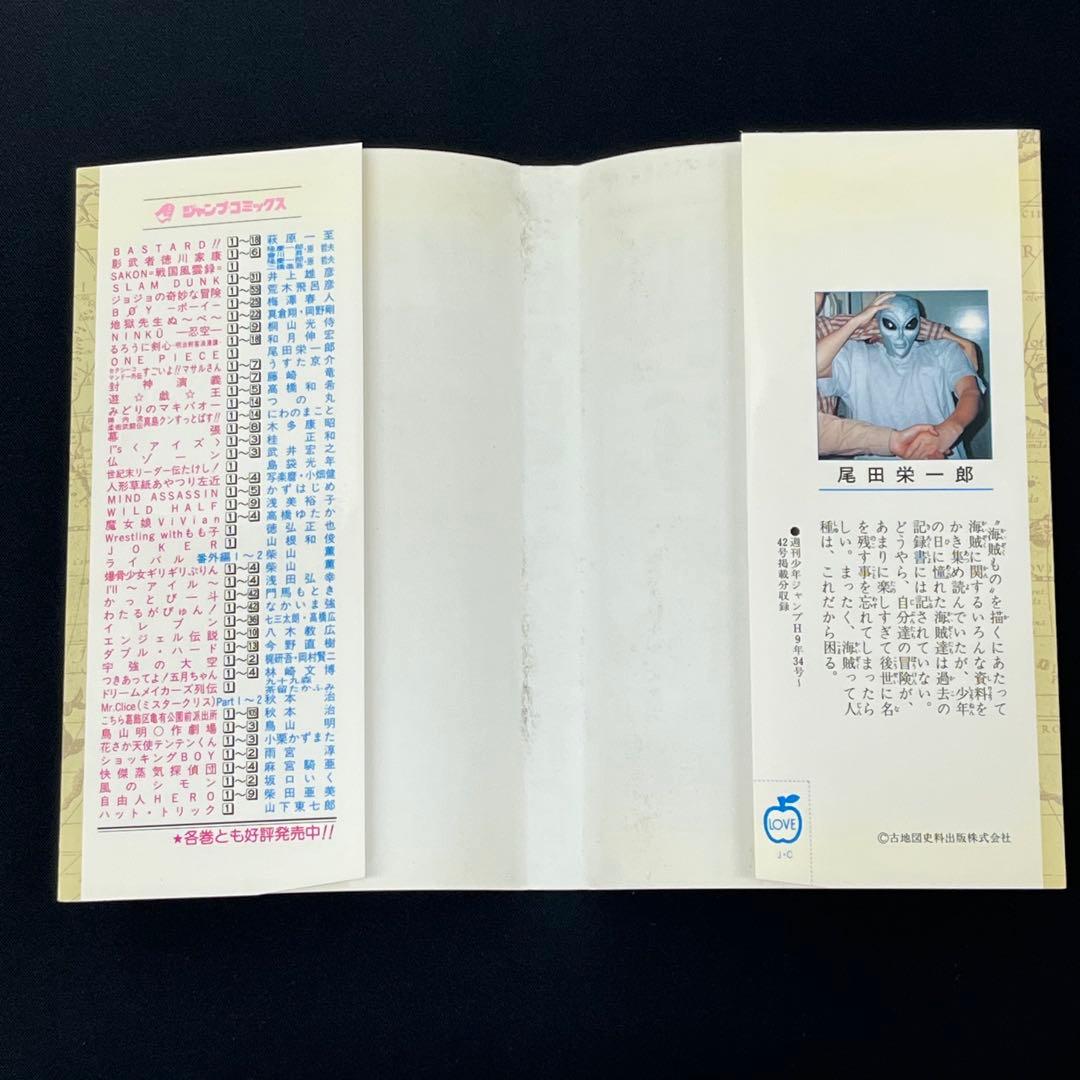 ジャンプコミックス
BASTARD!! 1〜18 萩原一至
影武者徳川家康 1〜6 隆慶一郎・原哲夫
SAKON=戦国風雲録= 1
SLAM DUNK 1〜31 井上雄彦
ジョジョの奇妙な冒険 荒木飛呂彦
BØY―ボーイ― 梅澤春人
地獄先生ぬ〜べ〜 1〜22 真倉翔・岡野剛
NINKŪ―忍空― 1〜9 桐山光侍
るろうに剣心―明治剣客浪漫譚― 1〜18 和月伸宏
ONE PIECE 1 尾田栄一郎
セクシーコマンドー外伝すごいよ!!マサルさん 1〜7 うすた京介
封神演義 1〜7 藤崎竜
遊☆戯☆王 1〜5 高橋和希
みどりのマキバオー 1〜14 つの丸
陣内流柔術武闘伝真島クンすっとばす!! 1〜14 にわのまこと
幕張 1〜8 木多康昭
I"s〈アイズ〉 1〜3 桂正和
仏ゾーン 1〜3 武井宏之
世紀末リーダー伝たけし! 1 島袋光年
人形草紙あやつり左近 1〜4 写楽麿・小畑健
MIND ASSASSIN 1〜5 かずはじめ
WILD HALF 1〜9 浅美裕子
魔女娘ViVian 1〜4 高橋ゆたか
Wrestling withもも子 1 徳弘正也
JOKER 1 山根和俊
ライバル 番外編1〜2 柴山薫
爆骨少女ギリギリぷりん 1〜4 柴山薫
I'll〜アイル〜 1〜4 浅田弘幸
かっとび一斗 門馬もとき
わたるがぴゅん! なかいま強
イレブン 七三太郎・高橋広
エンジェル伝説 1〜10 八木教広
ダブル・ハード 1〜13 今野直樹
宇強の大空 1〜2 梶研吾・岡村賢二
つきあってよ!五月ちゃん 1〜4 林崎文博
ドリームメイカーズ列伝 1 九十九森 茶留たかふみ
Mr.Clice(ミスタークリス) Part1〜2 秋本治
こちら葛飾区亀有公園前派出所 秋本治
鳥山明○作劇場 1〜3 鳥山明
花さか天使テンテンくん 1〜3 小栗かずまた
ショッキングBOY 1〜2 雨宮淳
快傑蒸気探偵団 1〜4 麻宮騎亜
風のシモン 1〜2 坂口いく
自由人HERO 1〜9 柴田亜美
ハット・トリック 1 山下東七郎
★各巻とも好評発売中!!
尾田栄一郎
"海賊もの"を描くにあたって
海賊に関するいろんな資料を
かき集め読んでいたが、少年
の日に憧れた海賊達は過去の
記録書には記されていない。
どうやら、自分達の冒険が、
あまりに楽しすぎて後世に名
を残す事を忘れてしまったら
しい。まったく、海賊って人
種は、これだから困る。
●週刊少年ジャンプH9年34号〜
42号掲載分収録
LOVE
J・C
©古地図史料出版株式会社